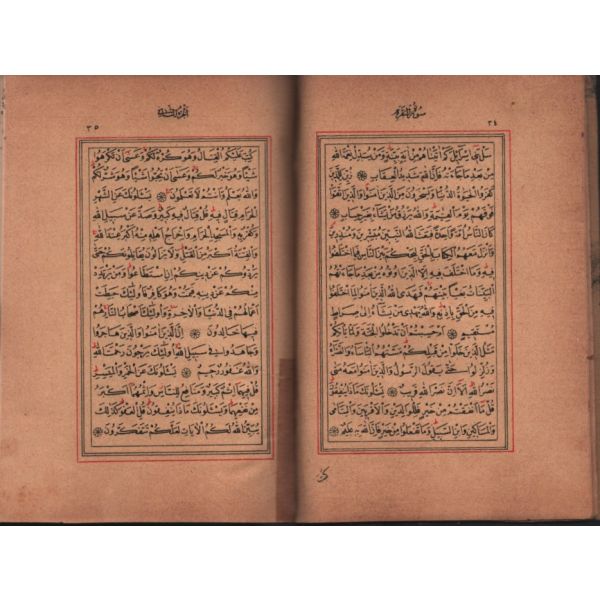 سورة البقرة
٣٤
سَلْ بَنِي اِسْرَائِلَ كَمْ اٰتَيْنَاهُمْ مِنْ اٰيَةٍ بَيِّنَةٍ وَمَنْ يُبَدِّلْ نِعْمَةَ اللّٰهِ
مِنْ بَعْدِ مَا جَاءَتْهُ فَاِنَّ اللّٰهَ شَدِيدُ الْعِقَابِ ۞ زُيِّنَ لِلَّذِينَ
كَفَرُوا الْحَيٰوةُ الدُّنْيَا وَيَسْخَرُونَ مِنَ الَّذِينَ اٰمَنُوا وَالَّذِينَ اتَّقَوْا
فَوْقَهُمْ يَوْمَ الْقِيٰمَةِ وَاللّٰهُ يَرْزُقُ مَنْ يَشَاءُ بِغَيْرِ حِسَابٍ ۞
كَانَ النَّاسُ اُمَّةً وَاحِدَةً فَبَعَثَ اللّٰهُ النَّبِيِّنَ مُبَشِّرِينَ وَمُنْذِرِينَ
وَاَنْزَلَ مَعَهُمُ الْكِتَابَ بِالْحَقِّ لِيَحْكُمَ بَيْنَ النَّاسِ فِيمَا اخْتَلَفُوا
فِيهِ وَمَا اخْتَلَفَ فِيهِ اِلَّا الَّذِينَ اُوتُوهُ مِنْ بَعْدِ مَا جَاءَتْهُمُ
الْبَيِّنَاتُ بَغْيًا بَيْنَهُمْ فَهَدَى اللّٰهُ الَّذِينَ اٰمَنُوا لِمَا اخْتَلَفُوا
فِيهِ مِنَ الْحَقِّ بِاِذْنِهِ وَاللّٰهُ يَهْدِي مَنْ يَشَاءُ اِلَى صِرَاطٍ
مُسْتَقِيمٍ ۞ اَمْ حَسِبْتُمْ اَنْ تَدْخُلُوا الْجَنَّةَ وَلَمَّا يَاْتِكُمْ
مَثَلُ الَّذِينَ خَلَوْا مِنْ قَبْلِكُمْ مَسَّتْهُمُ الْبَاْسَاءُ وَالضَّرَّاءُ
وَزُلْزِلُوا حَتَّى يَقُولَ الرَّسُولُ وَالَّذِينَ اٰمَنُوا مَعَهُ مَتَى
نَصْرُ اللّٰهِ اَلَا اِنَّ نَصْرَ اللّٰهِ قَرِيبٌ ۞ يَسْـَٔلُونَكَ مَاذَا يُنْفِقُونَ
قُلْ مَا اَنْفَقْتُمْ مِنْ خَيْرٍ فَلِلْوَالِدَيْنِ وَالْاَقْرَبِينَ وَالْيَتَامَى
وَالْمَسَاكِينِ وَابْنِ السَّبِيلِ وَمَا تَفْعَلُوا مِنْ خَيْرٍ فَاِنَّ اللّٰهَ بِهِ عَلِيمٌ ۞
الجزء الثاني
٣٥
كُتِبَ عَلَيْكُمُ الْقِتَالُ وَهُوَ كُرْهٌ لَكُمْ وَعَسَى اَنْ تَكْرَهُوا
شَيْئًا وَهُوَ خَيْرٌ لَكُمْ وَعَسَى اَنْ تُحِبُّوا شَيْئًا وَهُوَ شَرٌّ لَكُمْ
وَاللّٰهُ يَعْلَمُ وَاَنْتُمْ لَا تَعْلَمُونَ ۞ يَسْـَٔلُونَكَ عَنِ الشَّهْرِ
الْحَرَامِ قِتَالٍ فِيهِ قُلْ قِتَالٌ فِيهِ كَبِيرٌ وَصَدٌّ عَنْ سَبِيلِ اللّٰهِ
وَكُفْرٌ بِهِ وَالْمَسْجِدِ الْحَرَامِ وَاِخْرَاجُ اَهْلِهِ مِنْهُ اَكْبَرُ عِنْدَ اللّٰهِ
وَالْفِتْنَةُ اَكْبَرُ مِنَ الْقَتْلِ وَلَا يَزَالُونَ يُقَاتِلُونَكُمْ حَتَّى
يَرُدُّوكُمْ عَنْ دِينِكُمْ اِنِ اسْتَطَاعُوا وَمَنْ يَرْتَدِدْ
مِنْكُمْ عَنْ دِينِهِ فَيَمُتْ وَهُوَ كَافِرٌ فَاُولٰئِكَ حَبِطَتْ
اَعْمَالُهُمْ فِي الدُّنْيَا وَالْاٰخِرَةِ وَاُولٰئِكَ اَصْحَابُ النَّارِ هُمْ
فِيهَا خَالِدُونَ ۞ اِنَّ الَّذِينَ اٰمَنُوا وَالَّذِينَ هَاجَرُوا
وَجَاهَدُوا فِي سَبِيلِ اللّٰهِ اُولٰئِكَ يَرْجُونَ رَحْمَتَ اللّٰهِ
وَاللّٰهُ غَفُورٌ رَحِيمٌ ۞ يَسْـَٔلُونَكَ عَنِ الْخَمْرِ وَالْمَيْسِرِ
قُلْ فِيهِمَا اِثْمٌ كَبِيرٌ وَمَنَافِعُ لِلنَّاسِ وَاِثْمُهُمَا اَكْبَرُ
مِنْ نَفْعِهِمَا وَيَسْـَٔلُونَكَ مَاذَا يُنْفِقُونَ قُلِ الْعَفْوَ كَذٰلِكَ
يُبَيِّنُ اللّٰهُ لَكُمُ الْاٰيَاتِ لَعَلَّكُمْ تَتَفَكَّرُونَ ۞